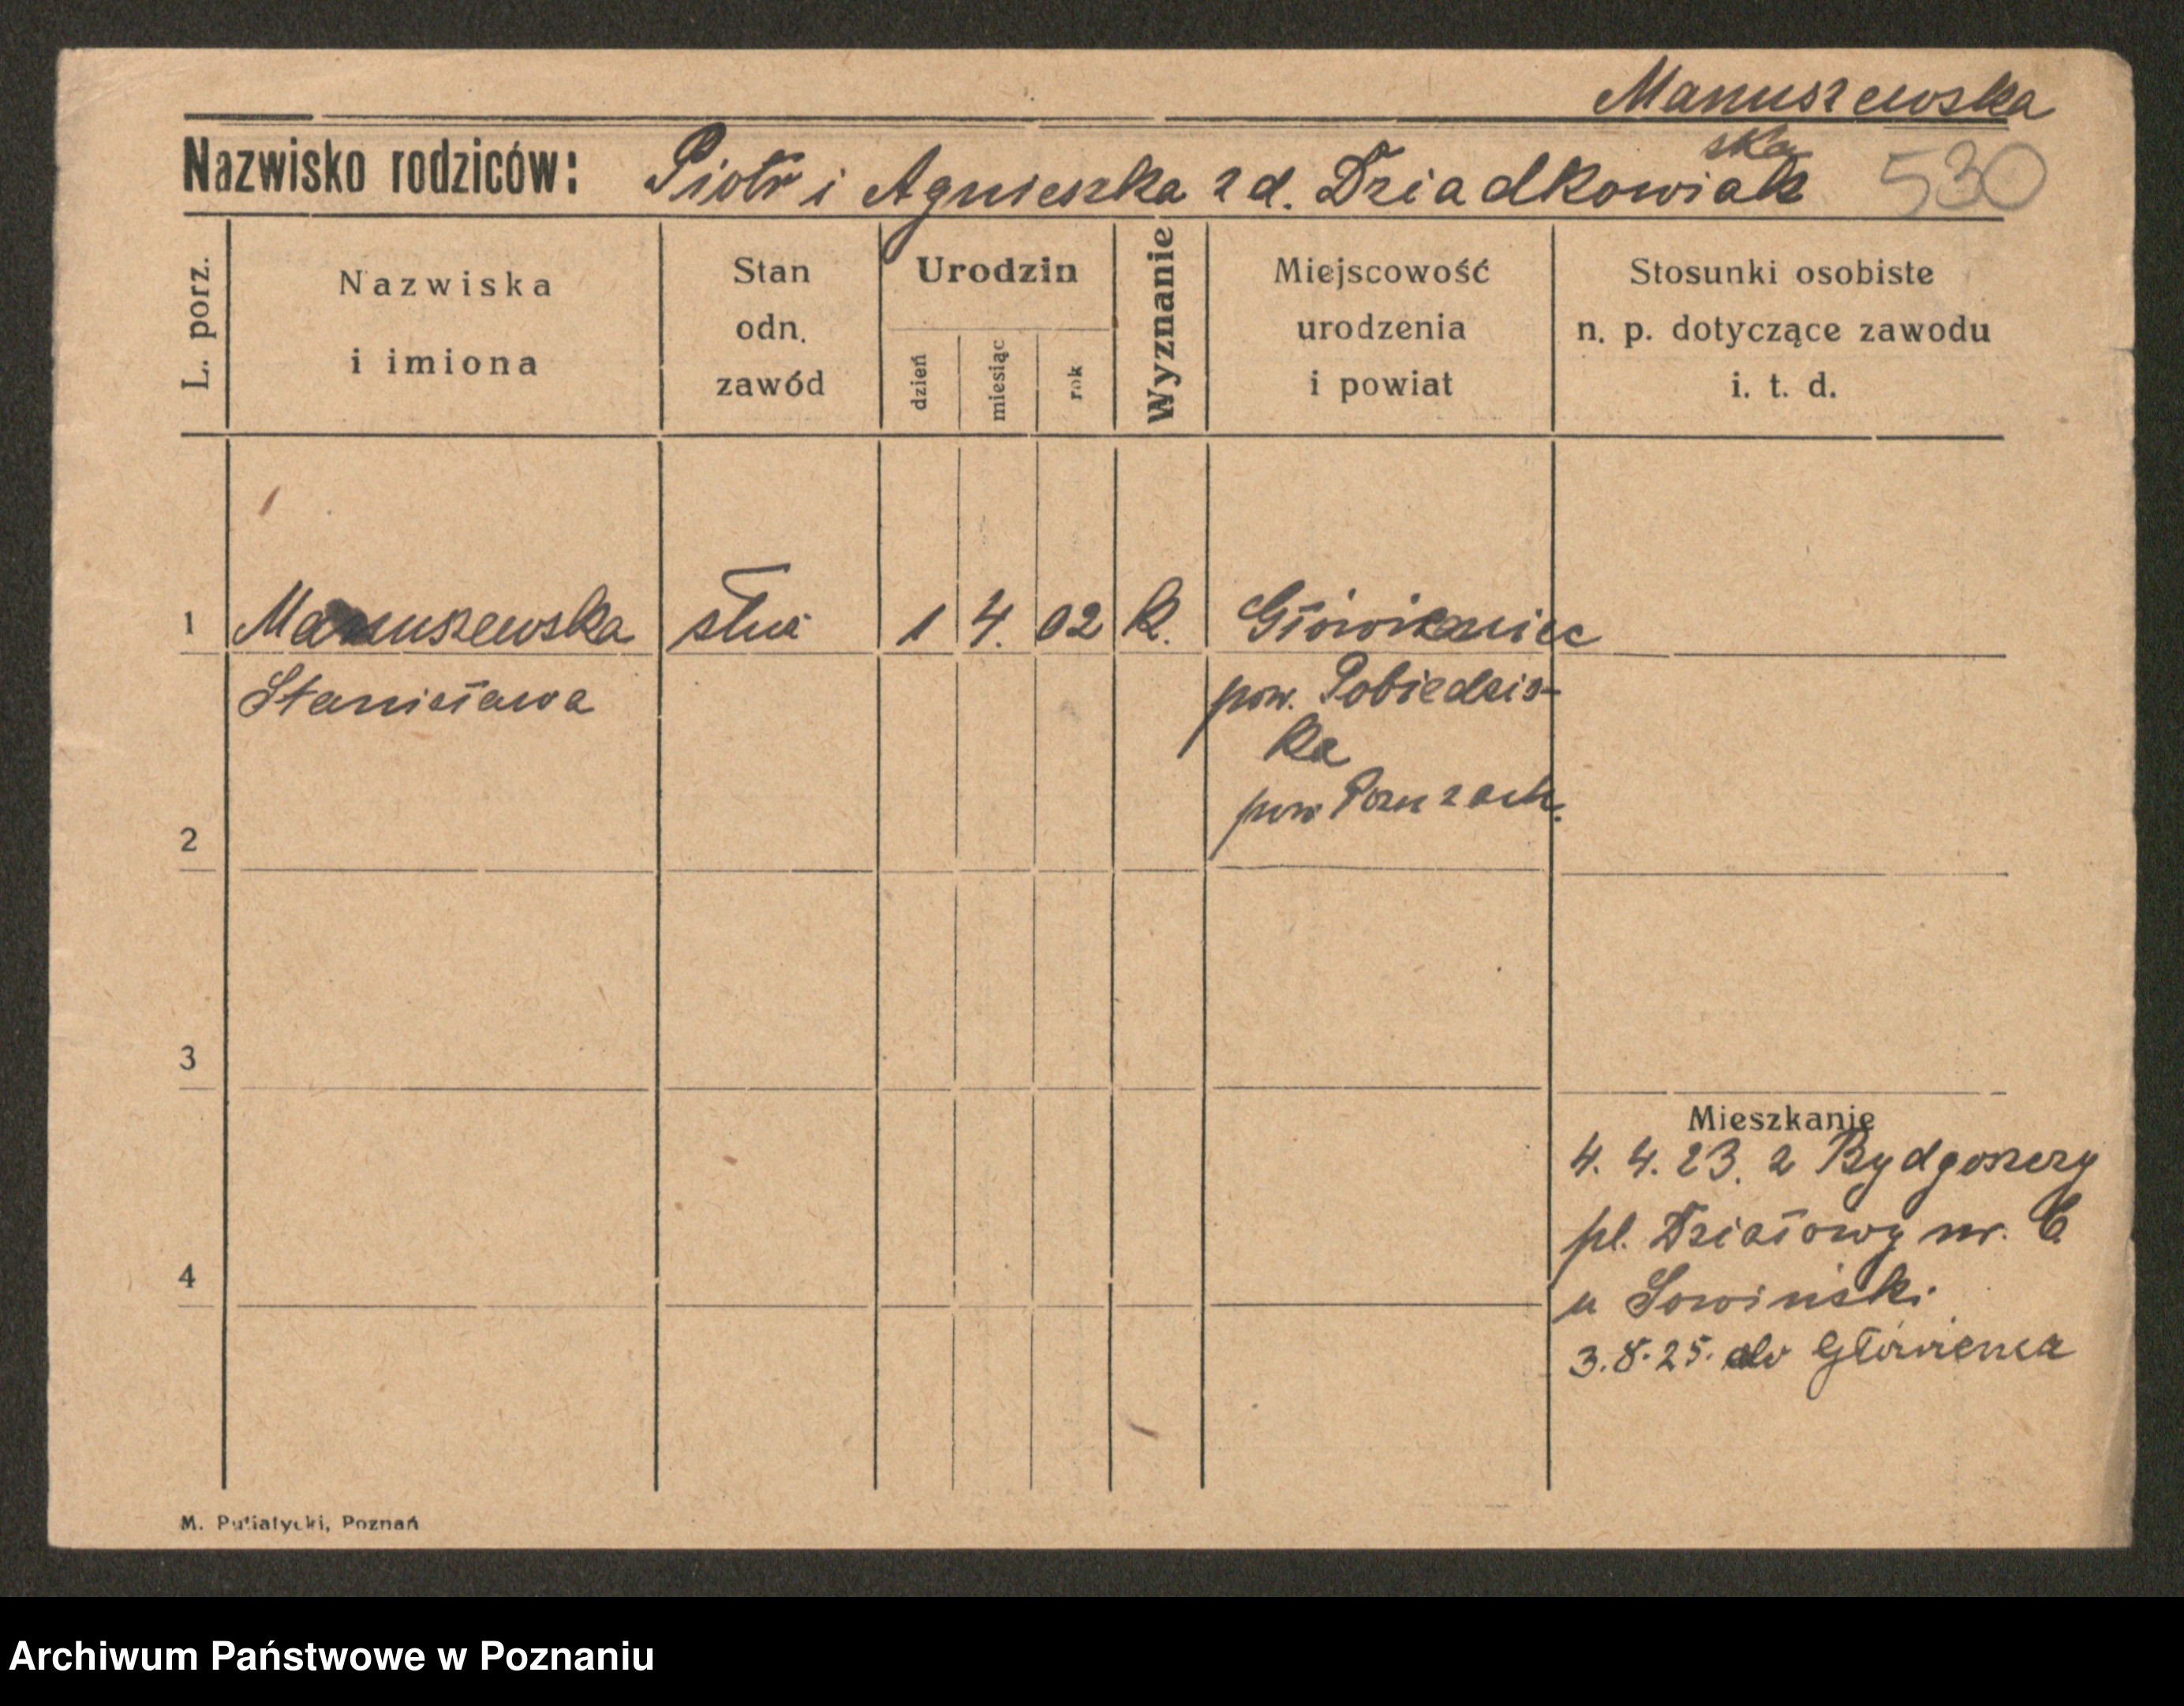 Manuszewska
ska
Nazwisko rodziców: Piotr i Agnieszka z d. Dziadkowiak 530
L. porz.
Nazwiska i imiona
Stan odn. zawód
Urodzin
dzień
miesiąc
rok
Wyznanie
Miejscowość urodzenia i powiat
Stosunki osobiste n. p. dotyczące zawodu i. t. d.
1 Manuszewska służ 1 4. 02 k.
Stanisława pow. Pobiedzis-
ka
pow Pozn zach.
2
3
Mieszkanie
4. 4. 23. z Bydgoszczy
pl. Działowy nr. 6
4
u Sowiński
3.8.25. do Główieńca
M. Putiatycki, Poznań
Archiwum Państwowe w Poznaniu